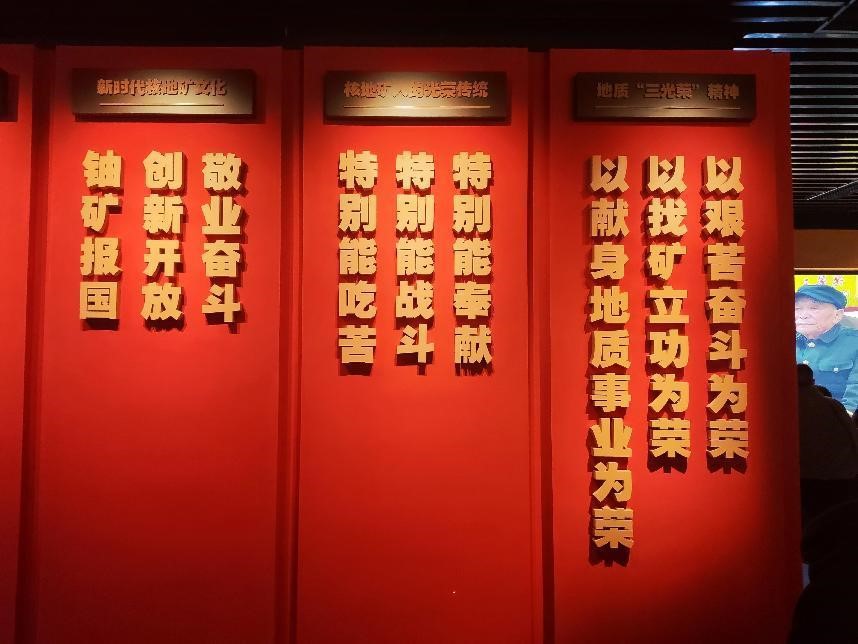 新时代核地矿文化
铀矿报国
创新开放
敬业奋斗
核地矿人的光荣传统
特别能吃苦
特别能战斗
特别能奉献
地质“三光荣”精神
以献身地质事业为荣
以找矿立功为荣
以艰苦奋斗为荣